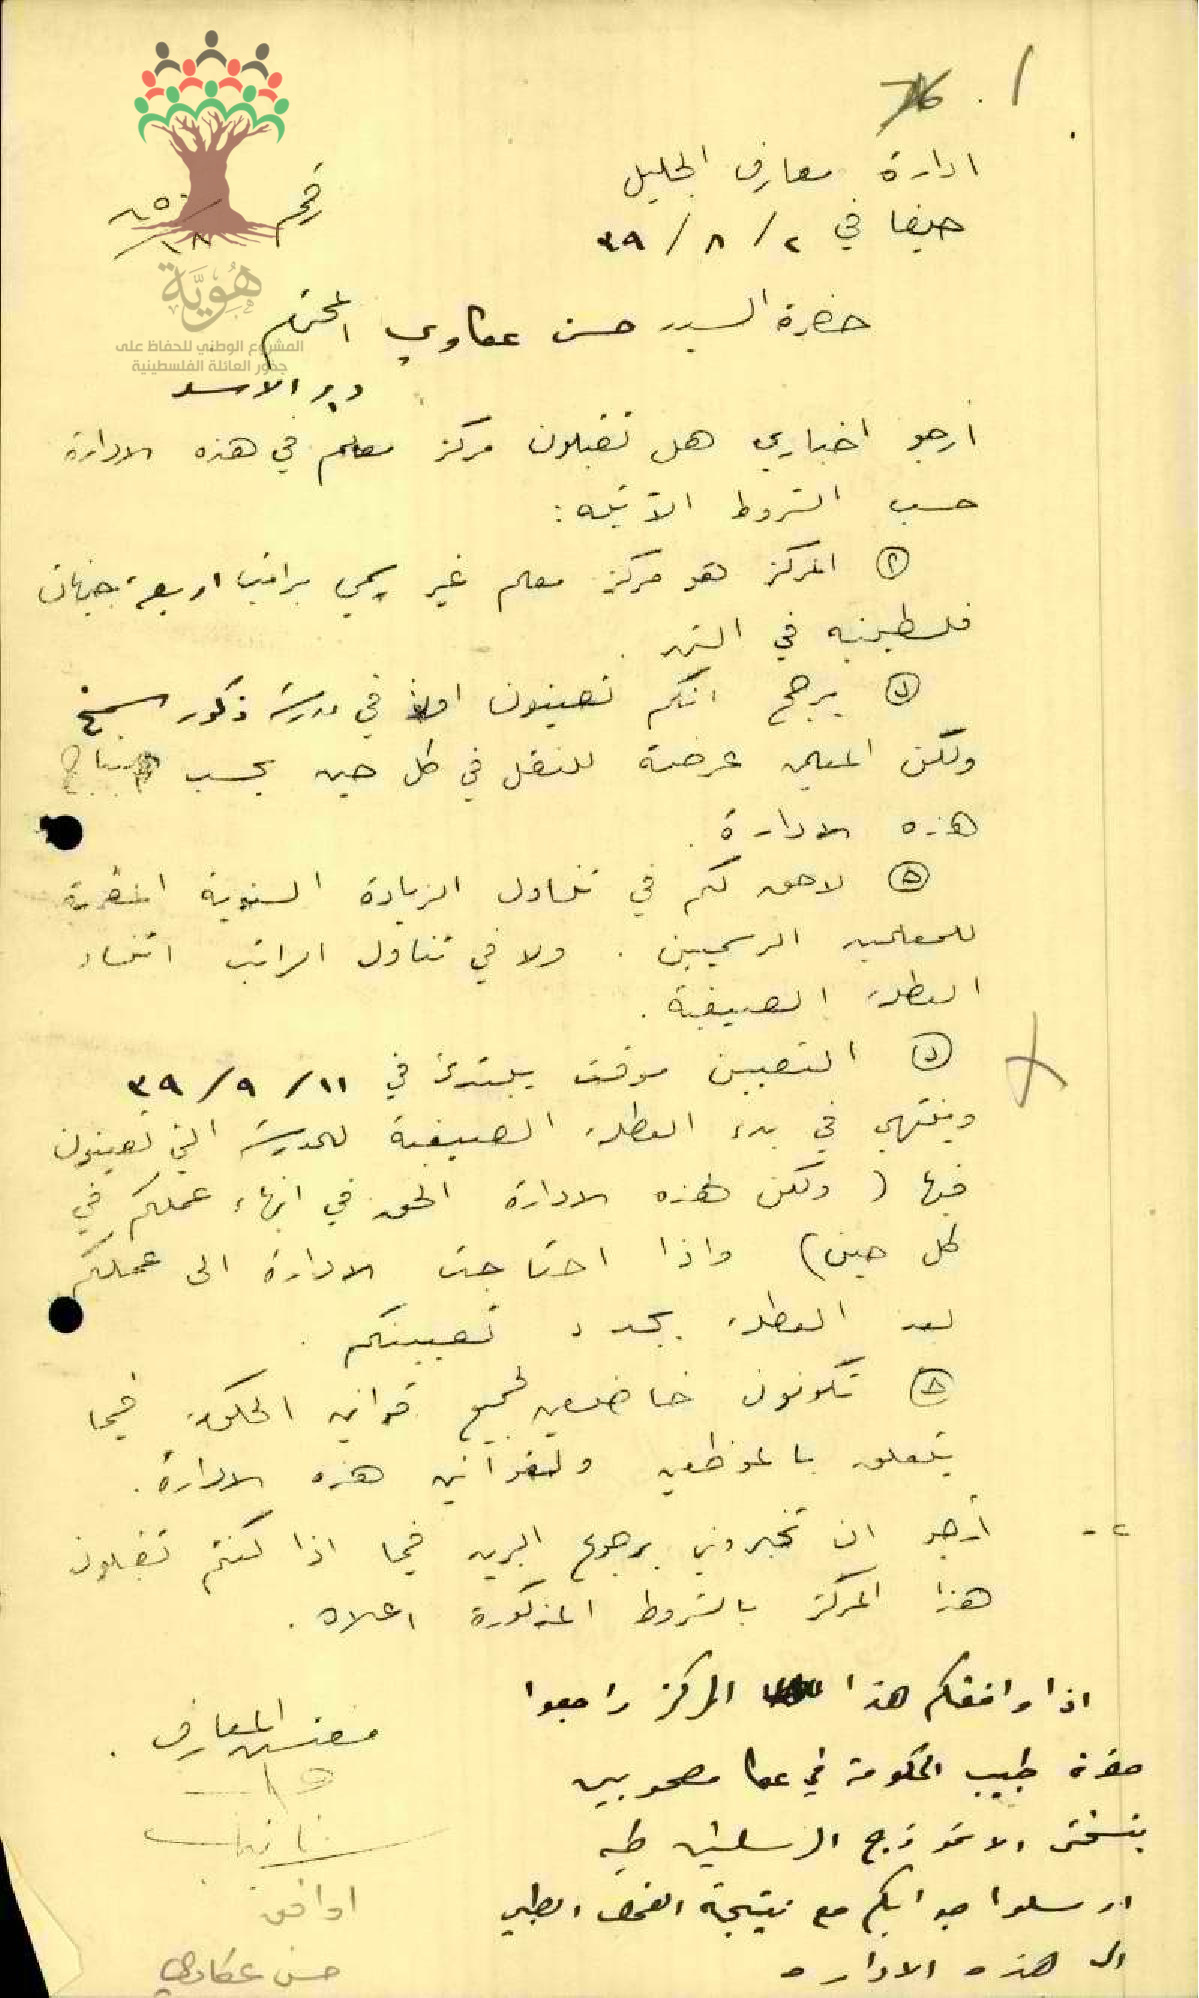 ١.
ادارة معارف الجليل
رقم
حيفا في ٢ / ٨ / ٣٩
هُوِيَّة
المشروع الوطني للحفاظ على
جذور العائلة الفلسطينية
حضرة السيد حسن عكاوي المحترم
دير الاسد
أرجو اخباري هل تقبلون مركز معلم في هذه الادارة
حسب الشروط الآتية :
المركز هو مركز معلم غير رسمي براتب اربعة جنيهات
فلسطينية في الشهر .
يرجح انكم تعينون اولا في مدرسة ذكور سمخ
ولكن المعلمين عرضة للنقل في كل حين بحسب
هذه الادارة .
لا حق لكم في تناول الزيادة السنوية المقررة
للمعلمين الرسميين . ولا في تناول الراتب اثناء
العطلة الصيفية .
التعيين موقت يبتدئ في ١١ / ٩ / ٣٩
وينتهي في بدء العطلة الصيفية للمدرسة التي تعينون
فيها ( ولكن لهذه الادارة الحق في انهاء عملكم في
كل حين ) واذا احتاجت الادارة الى عملكم
بعد العطلة يجدد تعيينكم .
تكونون خاضعين لجميع قوانين الحكومة فيما
يتعلق بالموظفين ولقوانين هذه الادارة .
٢ - أرجو ان تخبروني برجوع البريد فيما اذا كنتم تقبلون
هذا المركز بالشروط المذكورة اعلاه .
اذا وافقكم هذا المركز راجعوا
حضرة طبيب الحكومة في عكا مصحوبين
بنسختي الانموذج المرسلتين طيه
ارسلوا جوابكم مع نتيجة الفحص الطبي
الى هذه الادارة
مفتش المعارف .
اوافق
حسن عكاوي